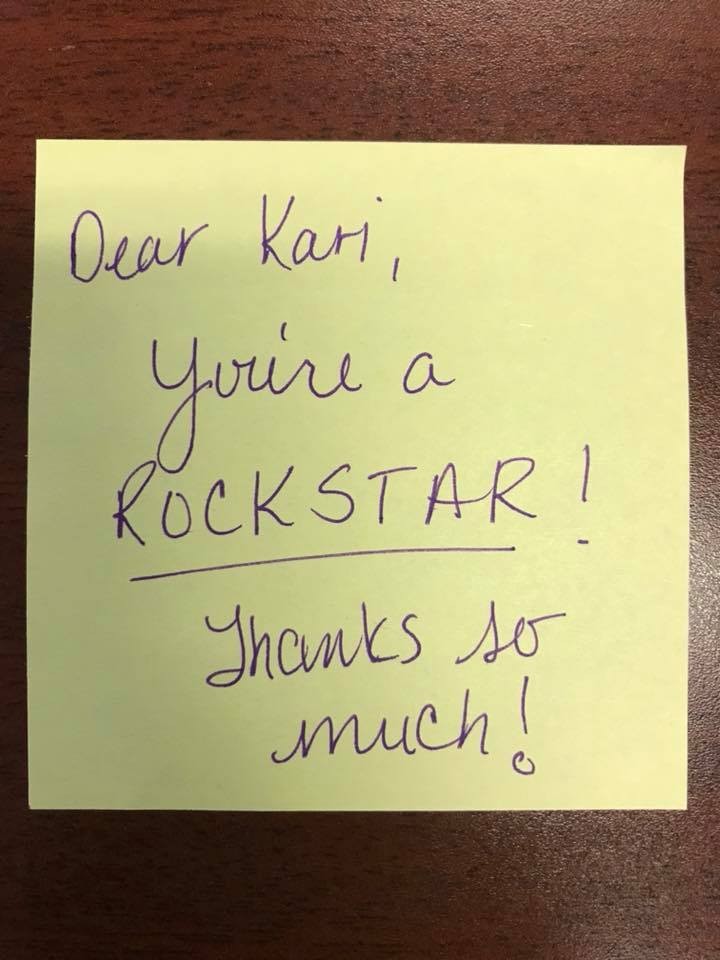 Dear Kari,
You're a
ROCKSTAR!
Thanks so
much!